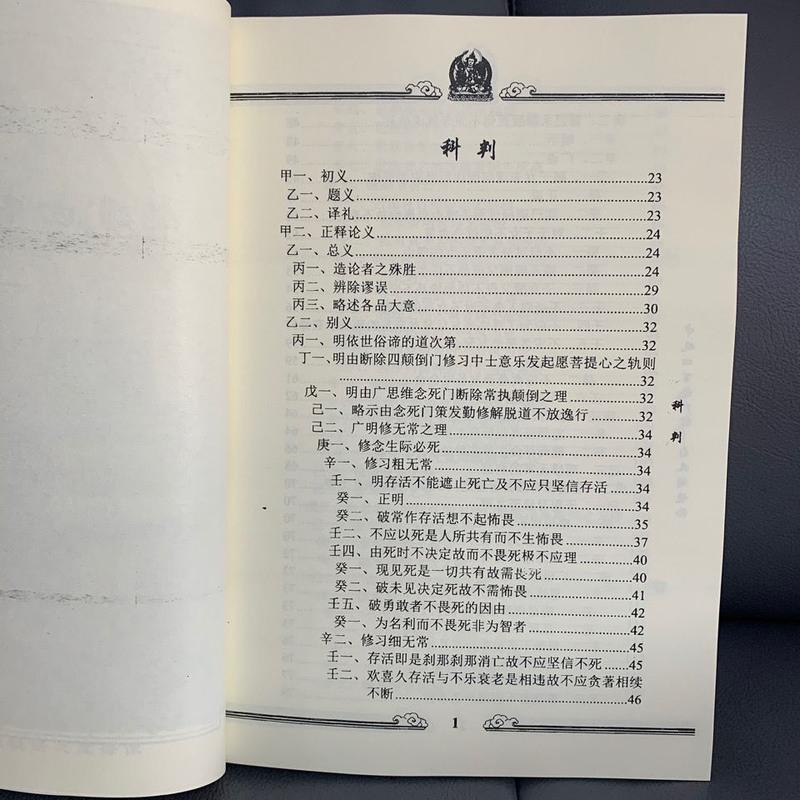 科判
甲一、初义……23
乙一、题义……23
乙二、译礼……23
甲二、正释论义……24
乙一、总义……24
丙一、造论者之殊胜……24
丙二、辨除谬误……29
丙三、略述各品大意……30
乙二、别义……32
丙一、明依世俗谛的道次第……32
丁一、明由断除四颠倒门修习中士意乐发起愿菩提心之轨则
……32
戊一、明由广思维念死门断除常执颠倒之理……32
己一、略示由念死门策发勤修解脱道不放逸行……32
己二、广明修无常之理……34
庚一、修念生际必死……34
辛一、修习粗无常……34
壬一、明存活不能遮止死亡及不应只坚信存活……34
癸一、正明……34
癸二、破常作存活想不起怖畏……35
壬二、不应以死是人所共有而不生怖畏……37
壬四、由死时不决定故而不畏死极不应理……40
癸一、现见死是一切共有故需畏死……40
癸二、破未见决定死故不需怖畏……41
壬五、破勇敢者不畏死的因由……42
癸一、为名利而不畏死非为智者……42
辛二、修习细无常……45
壬一、存活即是刹那刹那消亡故不应坚信不死……45
壬二、欢喜久存活与不乐衰老是相违故不应贪著相续
不断……46
科判
1